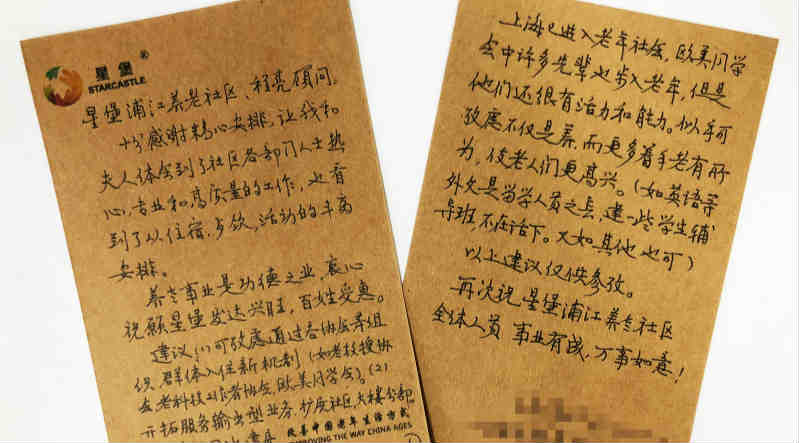 星堡
®
STARCASTLE
星堡浦江养老社区、程亮顾问。
十分感谢精心安排,让我和
夫人体会到了社区各部门人士热
心,专业和高质量的工作,也看
到了从住宿,步饮,活动的丰富
安排。
养老事业是功德之业,衷心
祝愿星堡发达兴旺,百姓受惠。
建议:(1)可考虑通过各协会等组
织群体入住新机制(如老教授协
会老科技工作者协会,欧美同学会)。(2)
开拓服务输出型业务,扩展社区,大楼
改善中国老年生活方式
IMPROVING THE WAY CHINA AGES
上海已进入老年社会,欧美同学
会中许多先辈也步入老年,但是
他们还很有活力和能力。似乎可
考虑不仅是养,而更多着手老有所
为,使老人们更高兴。(如英语等
外文是留学人员之长,建一些学生辅
导班,不在话下。又如其他也可)
以上建议仅供参考。
再次祝星堡浦江养老社区
全体人员 事业有成,万事如意!